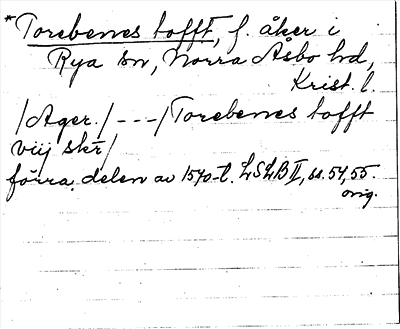 *Torebernes tofft, f. åker i
Rya sn, Norra Åsbo hd,
Krist. l.
/Ager./ - - - / Torebernes tofft
viij skr/
förra delen av 1570-t. LSLB II, ss. 54, 55.
orig.